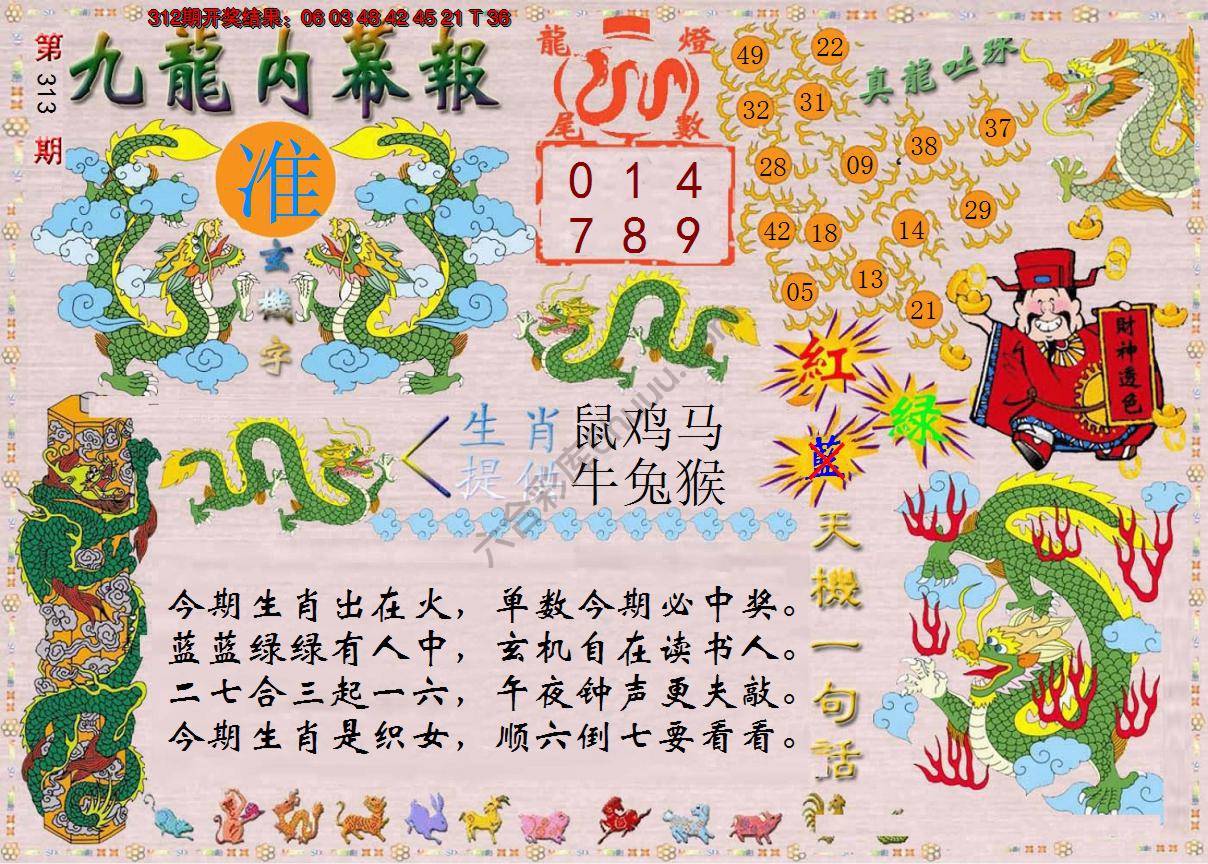 312期开奖结果：06 03 48 42 45 21 T 36
第313期
九龍内幕報
准
玄機字
龍燈
尾數
0 1 4
7 8 9
真龍吐珠
49 22
32 31
38 37
28 09
29
42 18 14
13
05
21
財神透色
紅
綠
藍
生肖 鼠鸡马
提供 牛兔猴
天機一句話
今期生肖出在火，单数今期必中奖。
蓝蓝绿绿有人中，玄机自在读书人。
二七合三起一六，午夜钟声更夫敲。
今期生肖是织女，顺六倒七要看看。